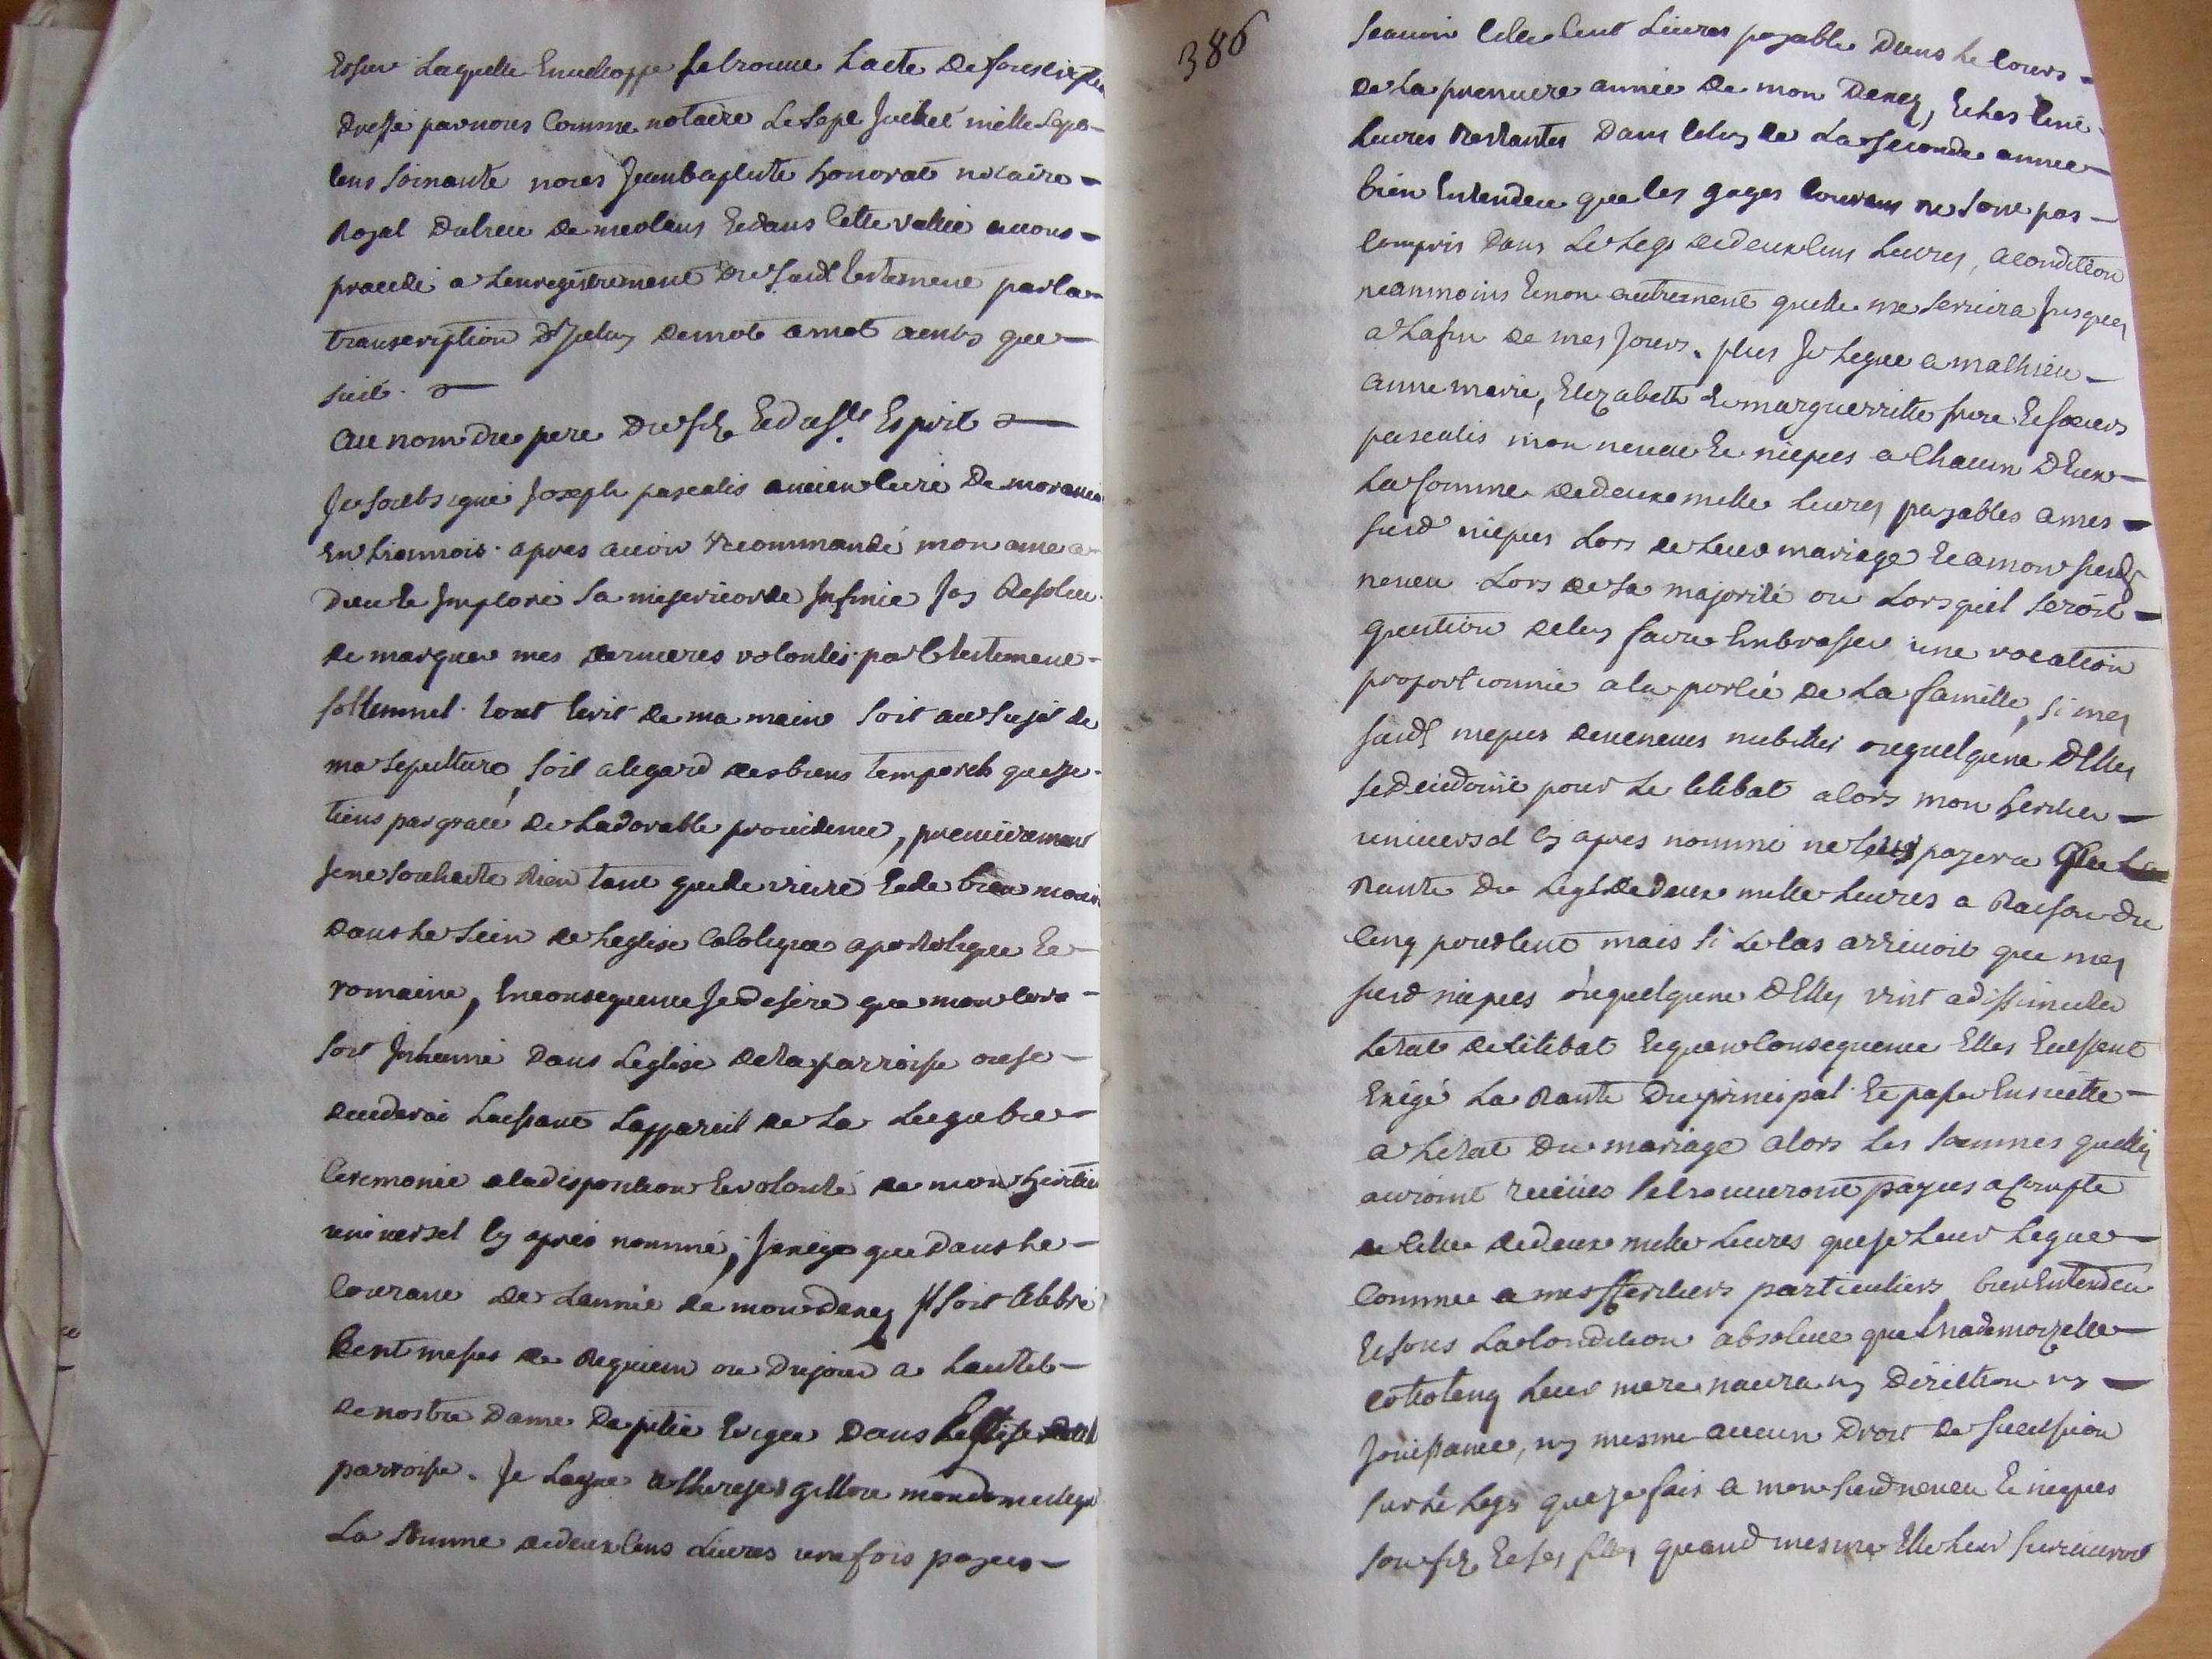 Et sur Laquelle Enveloppe se trouve L'acte de souscription
dressé par nous Comme notaire Le sept Juillet mille sept
Cens soixante nous Jeanbaptiste honorat notaire
Royal du lieu de meolans Et dans Cette vallée avons
procedé a L'enregistrement du susd testement par la
transcription d'Jceluy de mot a mot ainsy que
suit.
Au nom du pere Du fils Et du st Esprit
Je soubsigné Joseph pascalis ancien Curé De
En Lionnois. apres avoir recommandé mon ame a
Dieu et Jmploré sa misericorde Jnfinie Jay Resoleu
de marquer mes dernieres volontés par Ce testement
sollemnel tout Ecrit de ma main soit au sujet de
ma sepulture, soit a legard des biens temporels que je
tiens par grace de L'adorable providence, premierement
Je ne souhaite Rien tant que de vivre Et de bien mourir
dans Le sein de Leglise Catolique apostolique Et
romaine, En consequence Je desire que mon Corps
soit Jnhumé dans Leglise de la parroisse ou je
decederai Laissant L'appareil de La Lugubre
Ceremonie a la disposition Et volonté de mon heritier
universel Cy apres nommé, J'exige que dans Le
Courant de L'année de mon deces Jl soit Celebré
Cent messes de Requiem ou du jour a L'autel
de nostre dame de pitié Erigée dans Leglise de
parroisse. Je Legue a therese mon domestique
La somme de deux Cens Livres une fois payés
386
scavoir Celle Cent Livres payable Dans Le Cours
de La premiere année de mon Deces, Et Les Cent
Livres Restantes Dans Celuy de La seconde année
bien Entendeu que Les gages Courens ne sont pas
Compris dans Le Legs de deux Cens Livres, a condition
neanmoins Et non autrement qu'elle me servira Jusques
a La fin de mes Jours. plus Je Legue a mathieu
anne marie, Elizabeth Et marguerritte frere Et soeurs
pascalis mon neveu Et niepces a Chacun D'Eux
La somme de deux mille Livres payables a mes
susd niepces Lors de Leur mariage Et a mon susd
neveu Lors de sa majorité ou Lorsquil seroit
question de luy faire Embrasser une vocation
proportionnée a la portée de La famille, si mes
susd niepces deveneues nubiles ou quelqune d'Elles
se decidoint pour Le Celibat alors mon heritier
universel Cy apres nommé ne Leur payera que La
Rante du Legs de deux mille Livres a Raison du
Cinq pour Cent mais si Le Cas arrivoit que mes
susd niepces ou quelqune d'Elles vint a dissimuler
L'etat de Celibat Et quen Consequence Elles Eussent
Exigé La Rante du principal Et passer Ensuitte
a L'etat du mariage alors Les sommes quelles
auroint recües se trouveront payées a Compte
de Celle de deux mille Livres que je Leur Legue
Comme a mes heritiers particuliers bien Entendeu
Et sous La Condition absolue que mademoizelle
Leur mere n'aura ny Direction ny
Jouissance, ny mesme aucun Droit de succession
sur Le Legs que je fais a mon susd neveu Et niepces
son fils Et ses filles quand mesme Elle Leur surviveroit